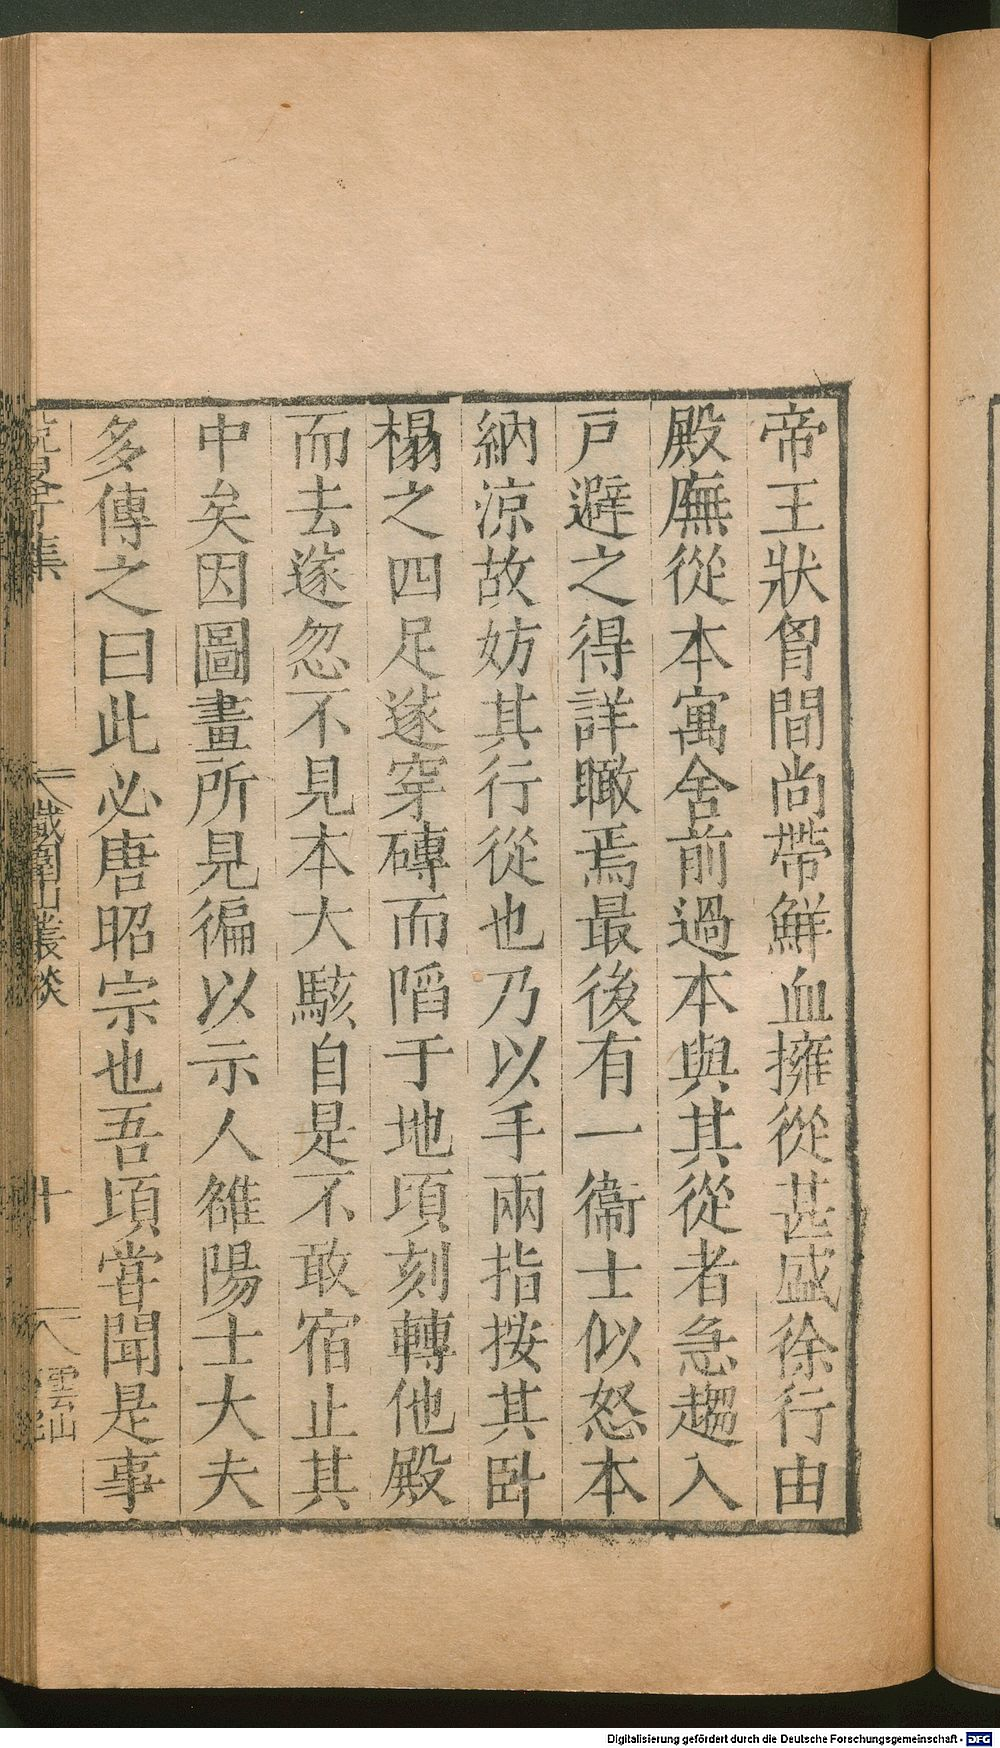 帝王狀胷間尚帶鮮血擁從甚盛徐行由
殿廡從本寓舍前過本與其從者急趨入
戸避之得詳瞰焉最後有一衞士似怒本
納涼故妨其行從也乃以手兩指按其卧
榻之四足遂穿磚而䧟于地頃刻轉他殿
而去遂忽不見本大駭自是不敢宿止其
中矣因圖畫所見徧以示人雒陽士大夫
多傳之曰此必唐昭宗也吾頃甞聞是事
集
鐵圍山叢談
十
雲山
Digitalisierung gefördert durch die Deutsche Forschungsgemeinschaft - DFG